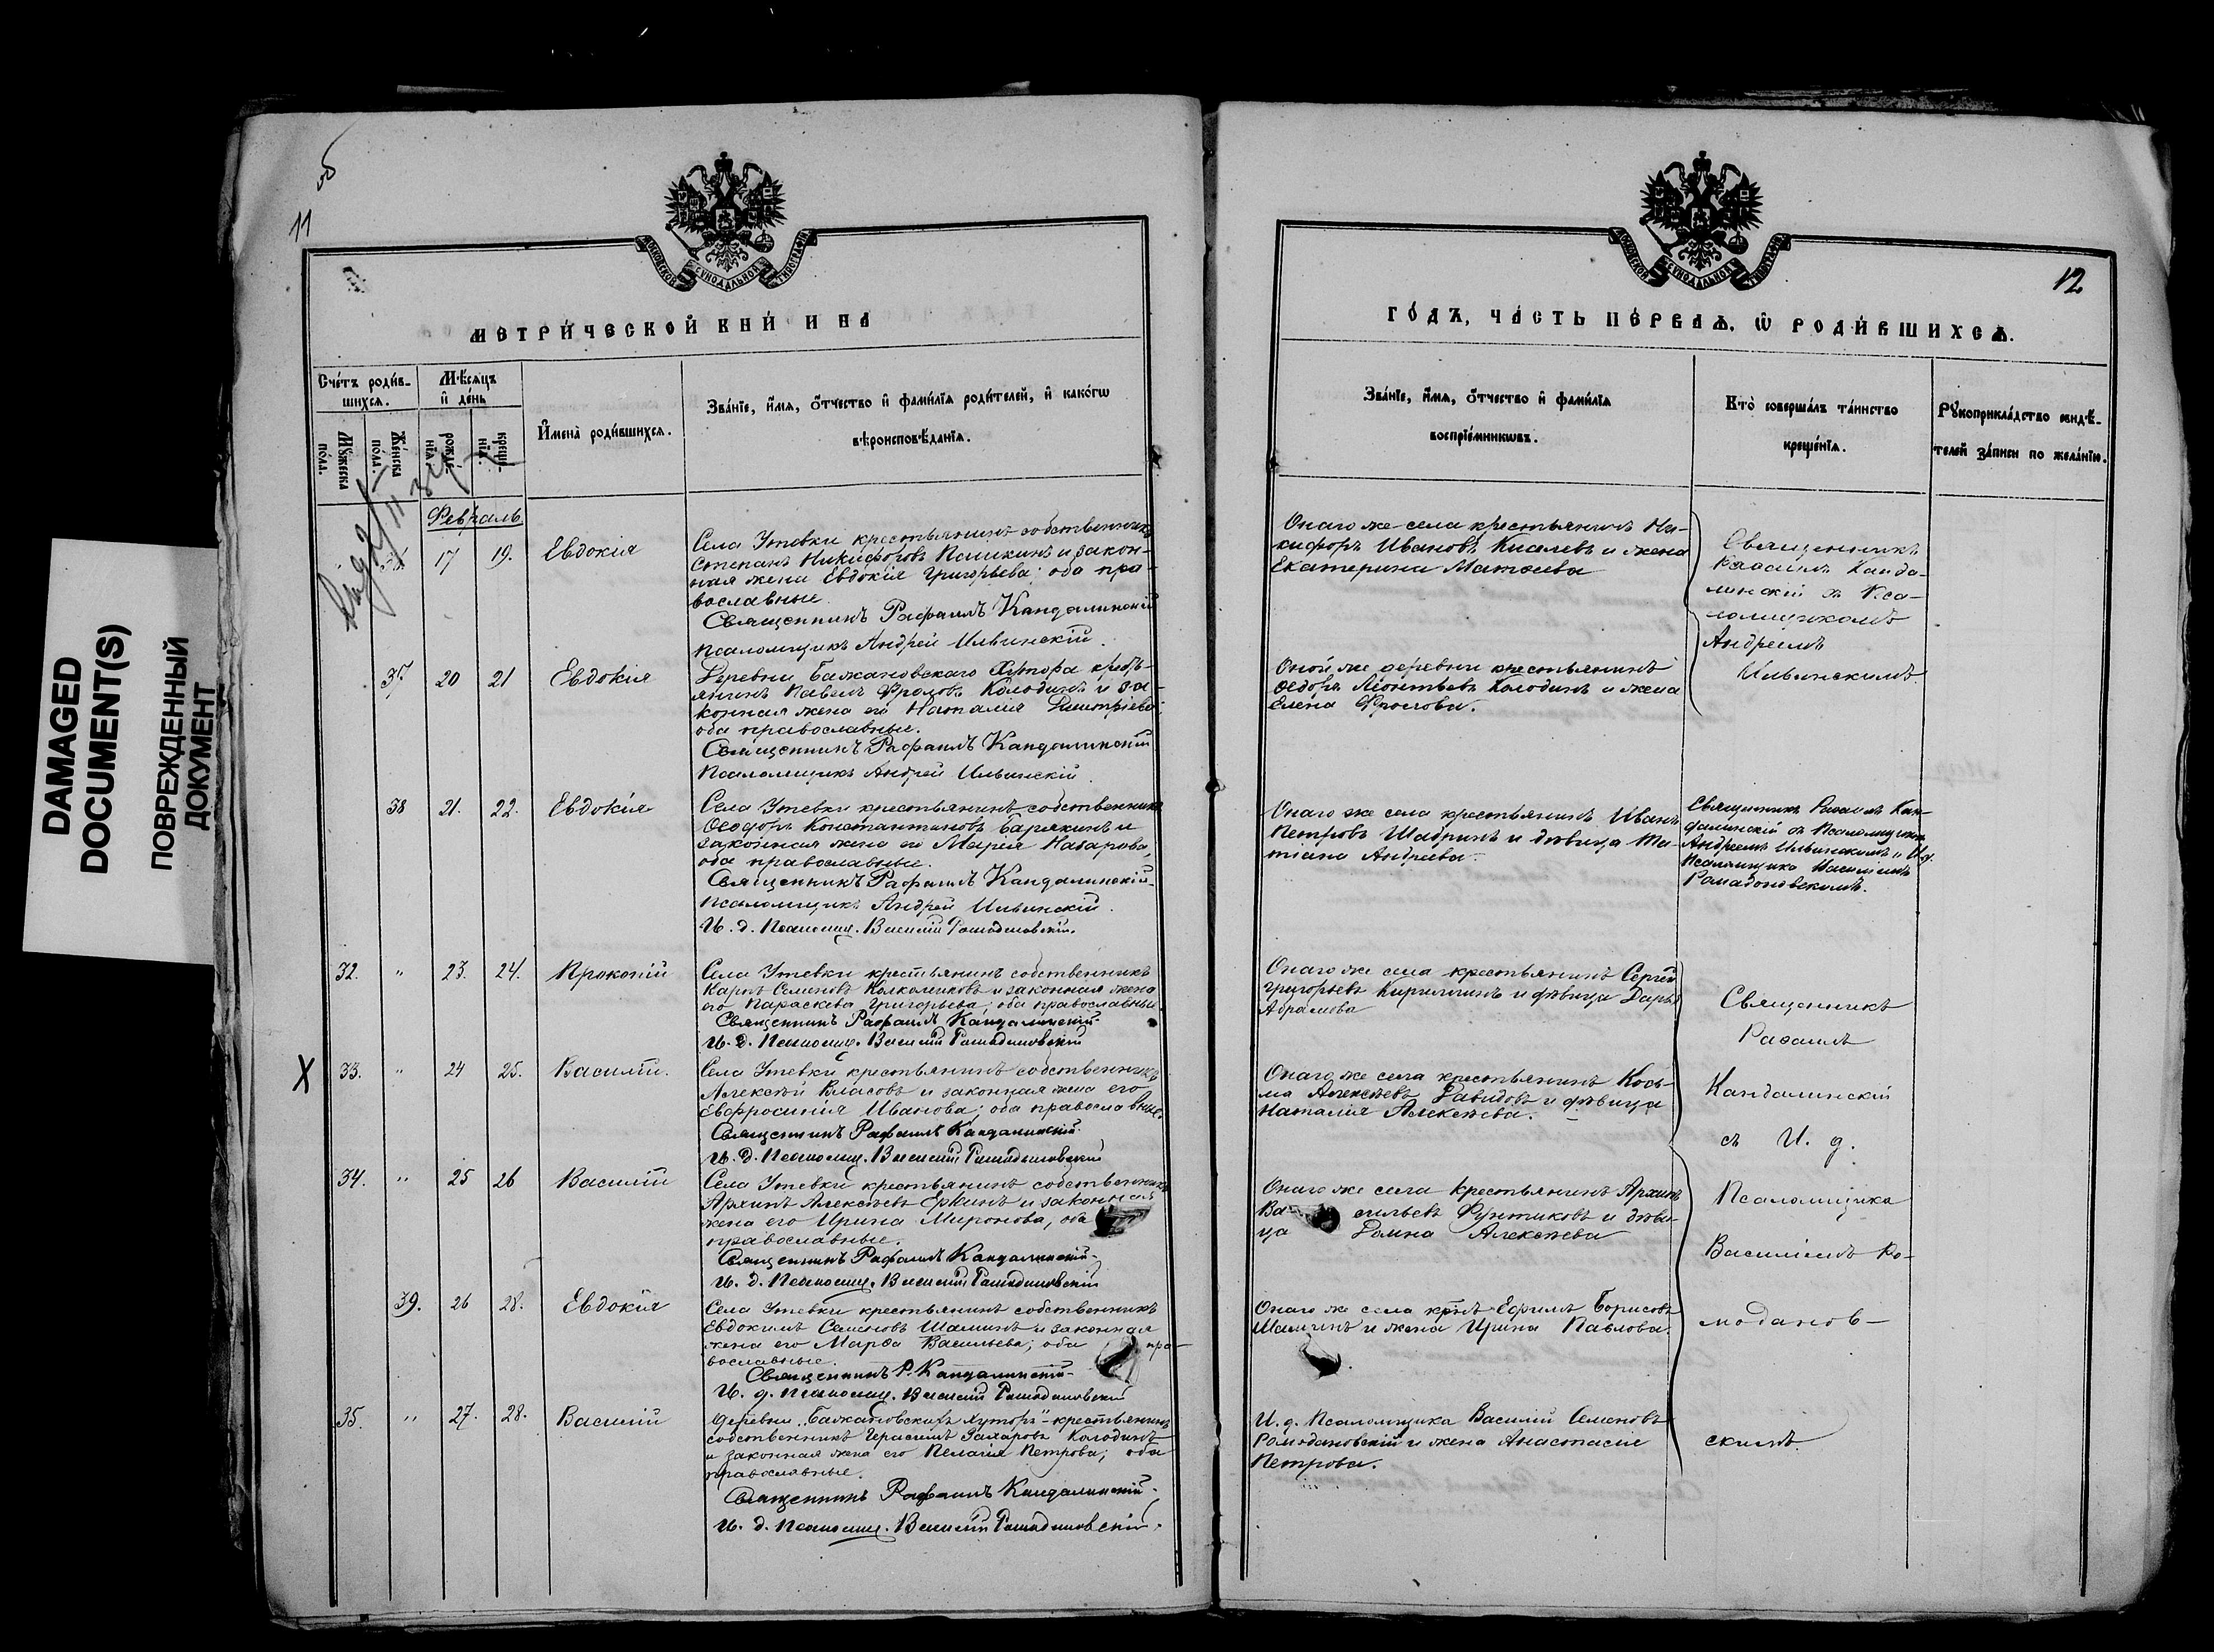 DAMAGED
DOCUMENT(S)
ПОВРЕЖДЕННЫЙ
ДОКУМЕНТ
11
МОСКОВСКОЙ СѴНОДАЛЬНОЙ ТИПОГРАФІИ
МЕТРИ́ЧЕСКОЙ КНИ́ И НА
Сче́тъ роди́в-
шихсѧ.
Мѣ́сѧцъ
и҆ де́нь
Мꙋ́жеска
по́ла.
Же́нска
по́ла.
рожде́-
нїѧ.
креще́-
нїѧ.
И҆мена̀ роди́вшихсѧ.
Зва́нїе, и҆́мѧ, ѻ҆́тчество и҆ фами́лїѧ роди́телей, и҆ како́гѡ
вѣроисповѣ́данїѧ.
Февраль
17 19. Евдокія
Села Утевки крестьянинъ собственникъ
Степанъ Никифоровъ Пашкинъ и закон-
ная жена Евдокія Григорьева; оба пра-
вославные.
Священникъ Рафаилъ Кандалинскій
Псаломщикъ Андрей Ильинскій.
37. 20 21 Евдокія
Деревни Бажановскаго Хутора кресть-
янинъ Павелъ Фроловъ Колодинъ и за-
конная жена его Наталія Димитріева;
оба православные.
Священникъ Рафаилъ Кандалинскій
Псаломщикъ Андрей Ильинскій.
38 21. 22. Евдокія
Села Утевки крестьянинъ собственникъ
Ѳеодоръ Константиновъ Барякинъ и
законная жена его Марія Назарова,
оба православные.
Священникъ Рафаилъ Кандалинскій
Псаломщикъ Андрей Ильинскій.
И. д. Псаломщ. Василій Ромодановскій.
32. " 23. 24. Прокопій
Села Утевки крестьянинъ собственникъ
Карпъ Семеновъ и законная жена
его Параскева Григорьева; оба православные
Священникъ Рафаилъ Кандалинскій
И. д. Псаломщ. Василій Ромодановскій
X 33. " 24 25. Василій.
Села Утевки крестьянинъ собственникъ
Алексѣй Власовъ и законная жена его
Евфросинія Иванова; оба православные.
Священникъ Рафаилъ Кандалинскій
И. д. Псаломщ. Василій Ромодановскій
34. " 25 26 Василій
Села Утевки крестьянинъ собственникъ
Архипъ Алексѣевъ Еркинъ и законная
жена его Ирина Миронова, оба
православные.
Священникъ Рафаилъ Кандалинскій
И. д. Псаломщ. Василій Ромодановскій
39. 26 28. Евдокія
Села Утевки крестьянинъ собственникъ
Евдокимъ Семеновъ Шаминъ и законная
жена его Марѳа Васильева; оба пра-
вославные.
Священникъ Р. Кандалинскій
И. д. Псаломщ. Василій Ромодановскій
35. " 27. 28. Василій
Деревни "Бажановскихъ Хуторъ" крестьянинъ
собственникъ Герасимъ Захаровъ Колодинъ
и законная жена его Пелагія Петрова; оба
православные.
Священникъ Рафаилъ Кандалинскій
И. д. Псаломщ. Василій Ромодановскій.
МОСКОВСКОЙ СѴНОДАЛЬНОЙ ТИПОГРАФІИ
12
ГО́ДЪ, ЧА́СТЬ ПЕ́РВАѦ, Ѡ҆ РОДИ́ВШИХСѦ.
Зва́нїе, и҆́мѧ, ѻ҆́тчество и҆ фами́лїѧ
воспрїе́мникѡвъ.
Кто̀ соверша́лъ та́инство
креще́нїѧ.
Рꙋкоприкла́дство свидѣ́-
телей за́писи по жела́нїю.
Онаго же села крестьянинъ Ни-
кифоръ Ивановъ Киселевъ и жена
Екатерина Матѳеева
Священникъ
РафаилъКанда-
линскій съ Пса-
ломщикомъ
Андреемъ
Ильинскимъ.
Оной же деревни крестьянинъ
Ѳедоръ Леонтьевъ Колодинъ и жена
Елена Фролова.
Онаго же села крестьянинъ Иванъ
Петровъ Шадринъ и дѣвица Та-
тіана Андреева.
Священникъ Рафаилъ Кан-
далинскій съ Псаломщикомъ
Андреемъ Ильинскимъ и И.д.
Псаломщика Василіемъ
Ромодановскимъ.
Онаго же села крестьянинъ Сергѣй
Григорьевъ Кирилинъ и дѣвица Дарья
Абрамова
Священникъ
Рафаилъ
Кандалинскій
съ И. д.
Псаломщика
Василіемъ Ро-
моданов-
скимъ.
Онаго же села крестьянинъ Козь-
ма Алексѣевъ Давидовъ и дѣвица
Наталія Алексѣева.
Онаго же села крестьянинъ Архипъ
Васильевъ Фунтиковъ и дѣви-
ца Домна Алексѣева
Онаго же села кр-нъ Ефимъ Борисовъ
Шаминъ и жена Ирина Павлова.
И. д. Псаломщика Василій Семеновъ
Ромодановскій и жена Анастасія
Петрова.